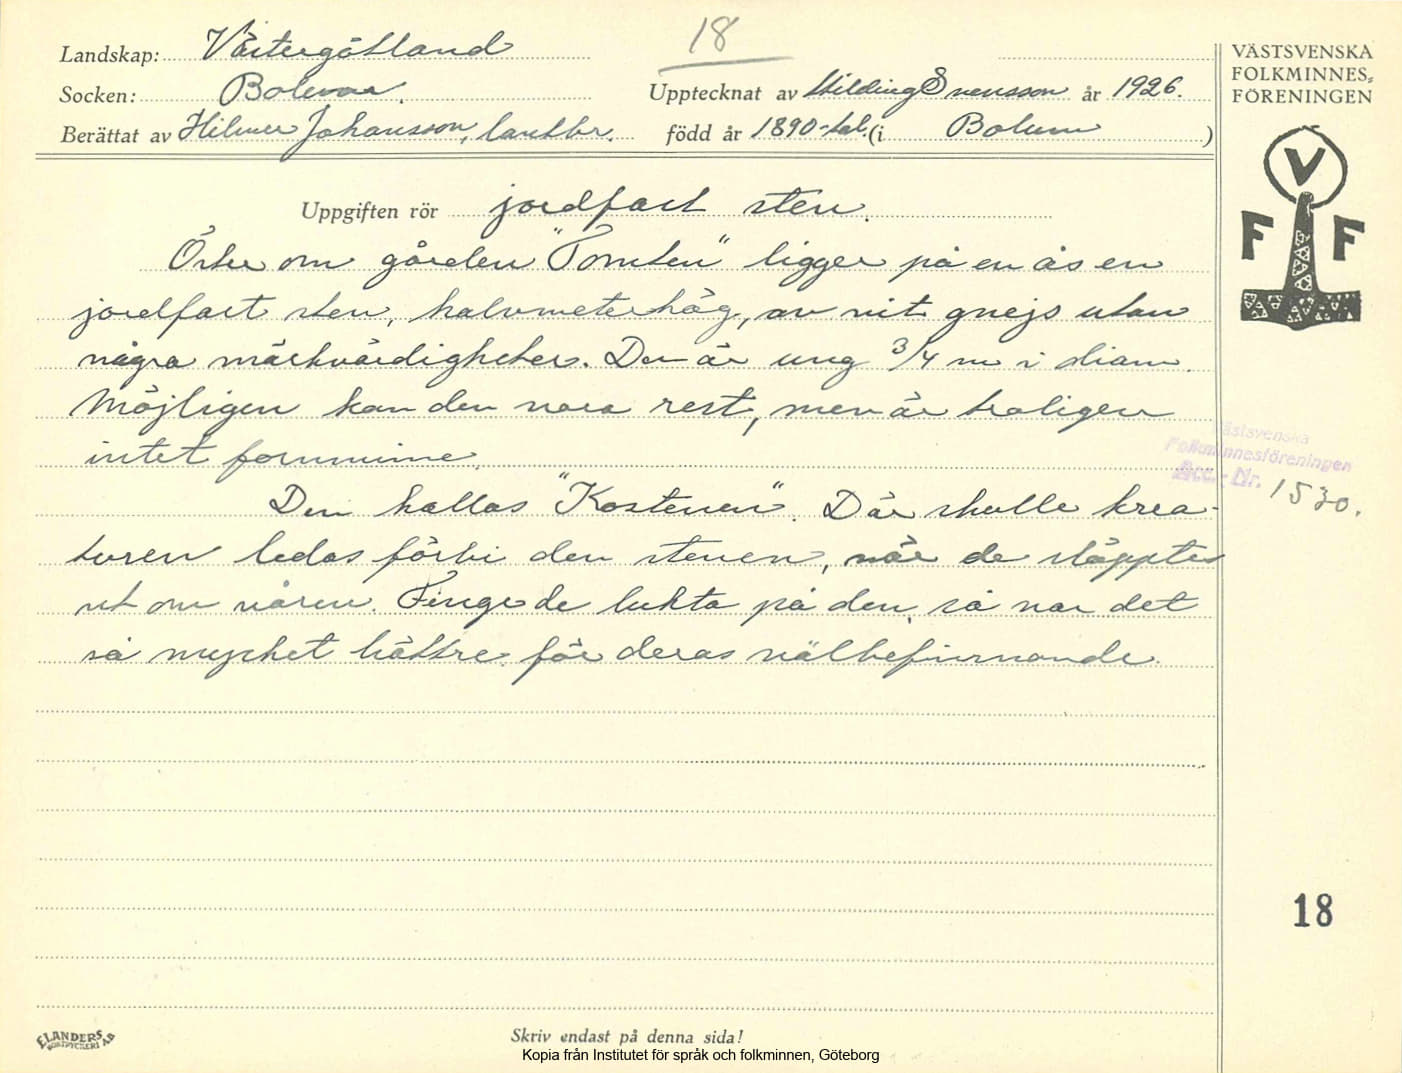 18
Landskap: Västergötland
Socken: Bolum.
Upptecknat av Hilding Svensson år 1926.
Berättat av Hilmer Johansson, lantbr. född år 1890-tal. (i Bolum)
VÄSTSVENSKA
FOLKMINNES-
FÖRENINGEN
V
F F
Uppgiften rör jordfast sten.
Öster om gården "Tomten" ligger på en ås en
jordfast sten, halvmeterhög, av vit gnejs utan
några märkvärdigheter. Den är ung 3/4 m i diam.
Möjligen kan den vara rest, men är troligen
intet fornminne.
Den kallas "Kostenen". Där skulle krea-
turen ledas förbi den stenen, när de släpptes
ut om våren. Finge de lukta på den, så var det
så mycket bättre för deras välbefinnande.
Västsvenska
Folkminnesföreningen
Acc.-Nr. 1530.
18
ELANDERS
BOKTRYCKERI AB
Skriv endast på denna sida!
Kopia från Institutet för språk och folkminnen, Göteborg